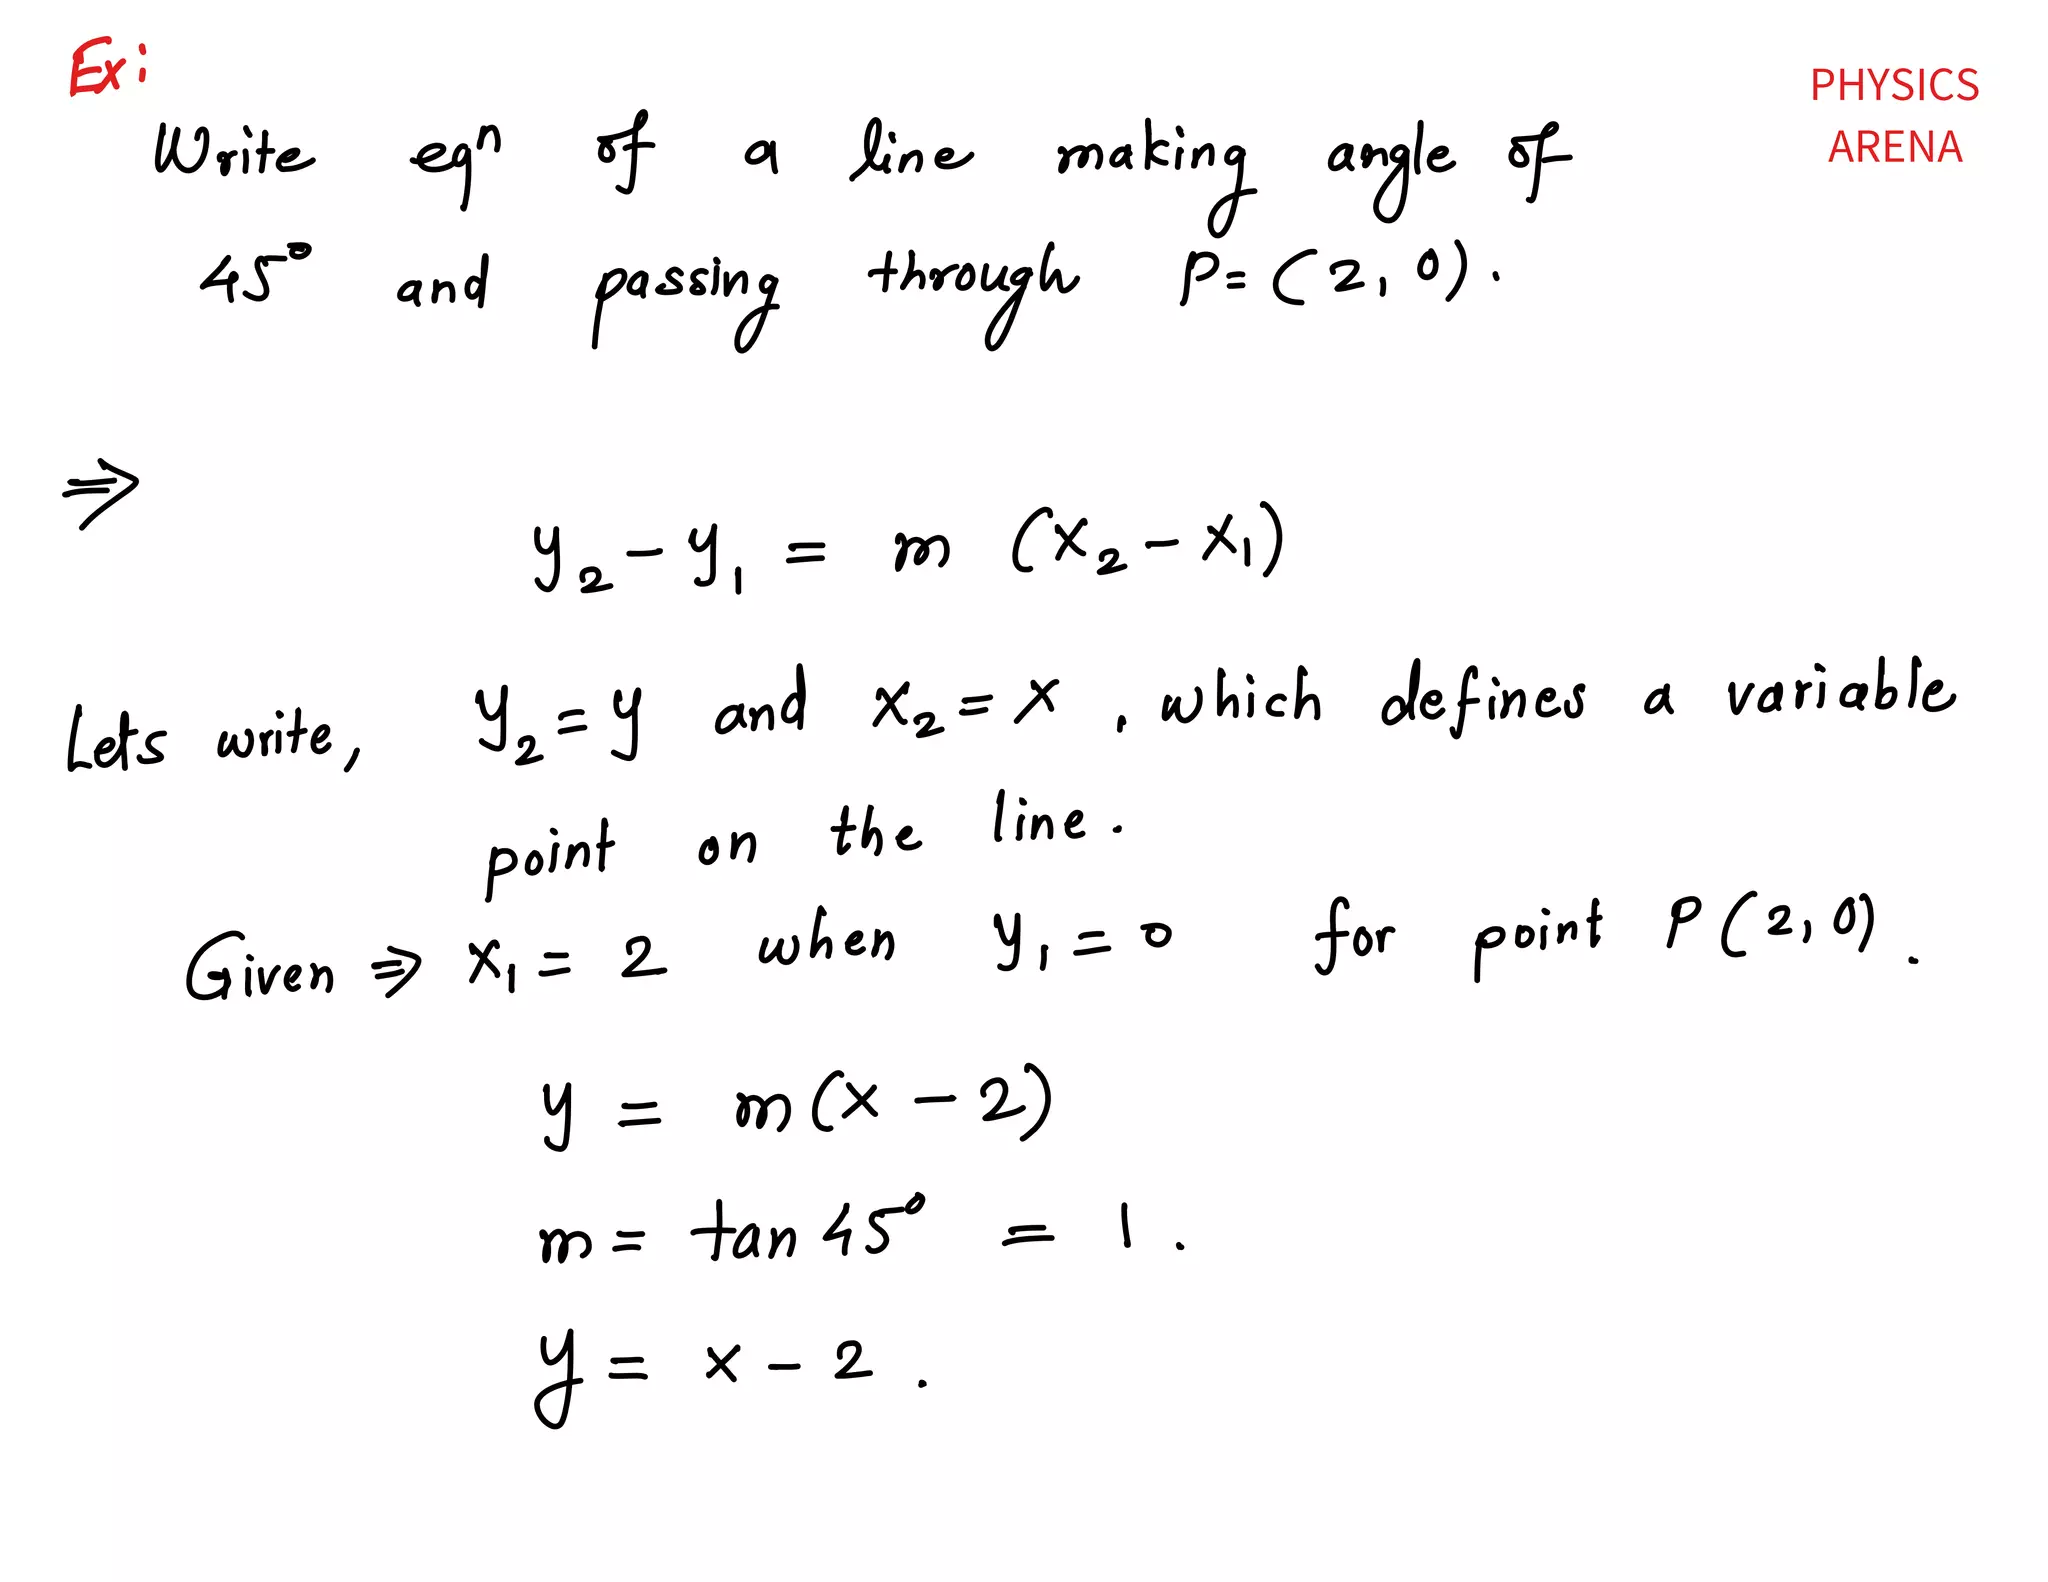 Ex:
PHYSICS
ARENA
Write eqⁿ of a line making angle of
45° and passing through P = (2, 0).
⇒
y₂ - y₁ = m (x₂ - x₁)
Lets write, y₂ = y and x₂ = x, which defines a variable
point on the line.
Given ⇒ x₁ = 2 when y₁ = 0 for point P(2, 0).
y = m(x - 2)
m = tan 45° = 1.
y = x - 2.